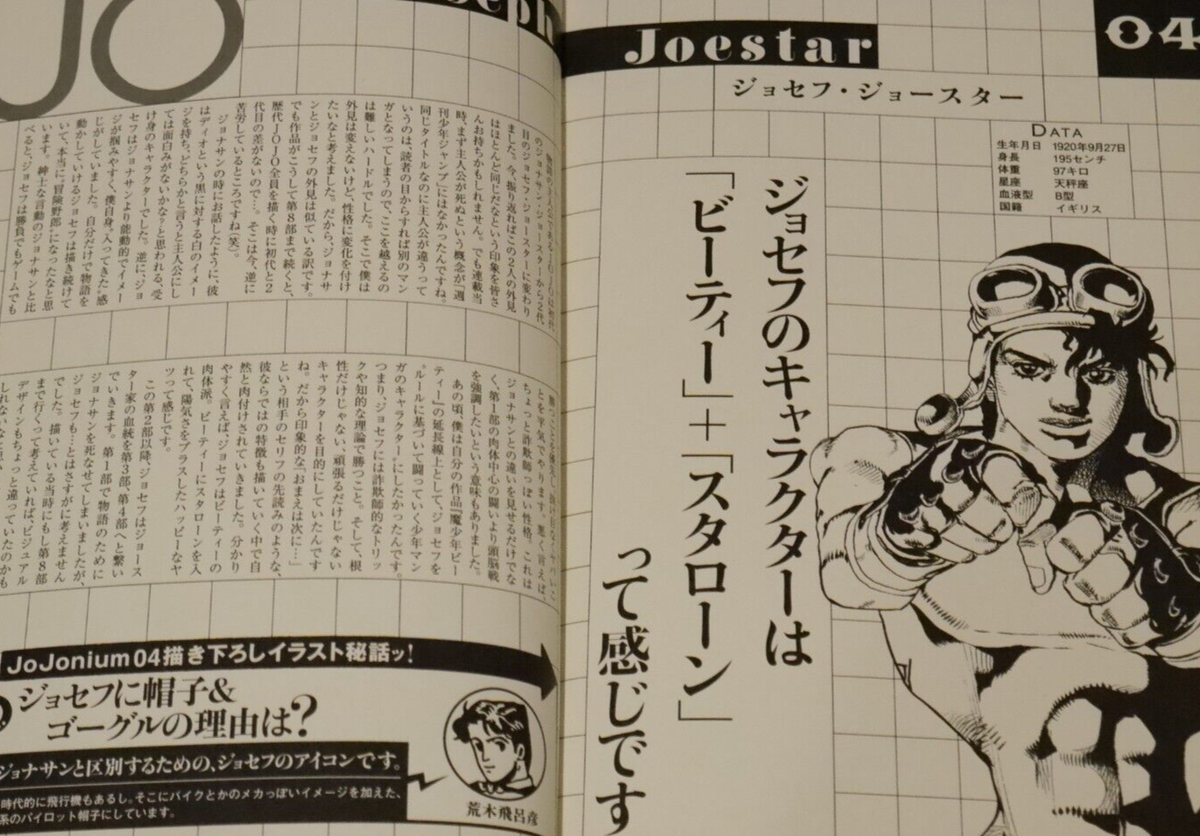 JO
seph
Joestar
04
ジョセフ・ジョースター
DATA
生年月日 1920年9月27日
身長 195センチ
体重 97キロ
星座 天秤座
血液型 B型
国籍 イギリス
ジョセフのキャラクターは
「ビーティー」+「スタローン」
って感じです
物語の主人公である「JOJO」は初代
のジョナサン・ジョースターから2代
目のジョセフ・ジョースターに変わり
ました。今、振り返ればこの2人の外見
はほとんど同じだなという印象を皆さ
んお持ちかもしれません。でも連載当
時、まず主人公が死ぬという概念が「週
刊少年ジャンプ」にはなかったんですね。
同じタイトルなのに主人公が違うって
いうのは、読者の目からすれば別のマン
ガとなってしまうので、ここを越えるの
は難しいハードルでした。そこで僕は
外見は変えないけど、性格に変化を付け
たいなと考えました。だから、ジョナサ
ンとジョセフの外見は似ている訳です。
でも作品がこうして第8部まで続くと、
歴代JOJO全員を描く時に初代と2
代目の差がないので…。そこは今、逆に
苦労しているところですね(笑)。
ジョナサンの時にお話したように、彼
はディオという黒に対する白のイメー
ジを持ち、どちらかと言うと主人公にし
ては面白みがないかな?と思われる、受
け身のキャラクターでした。逆に、ジョ
セフはジョナサンより能動的でイメー
ジが掴みやすく、僕自身、“入ってきた”感
じがしていました。自分だけで物語を
動かしていけるジョセフは描き続けて
いて、本当に“冒険野郎”になったなと思
います。紳士な言動のジョナサンと比
べると、ジョセフは勝負でもゲームでも
とを平気でやります。悪く言えば、
ちょっと詐欺師っぽい性格。これは
ジョナサンとの違いを見せるだけでな
く、第1部の肉体中心の闘いより頭脳戦
を強調したいという意味もありました。
あの頃、僕は自分の作品『魔少年ビー
ティー』の延長線上として、ジョセフを
“ルールに基づいて闘っていく少年マン
ガのキャラクター”にしたかったんです。
つまり、ジョセフには詐欺師的なトリッ
クや知的な理論で勝つこと。そして、根
性だけじゃない、頑張るだけじゃない
キャラクターを目的にしていたんです
ね。だから印象的な「おまえは次に…」
という相手のセリフの先読みのような、
彼ならではの特徴も描いていく中で自
然と肉付けされていきました。分かり
やすく言えば、ジョセフはビーティーの
肉体派。ビーティーにスタローンを入
れて、陽気さをプラスしたハッピーなヤ
ツって感じです。
この第2部以降、ジョセフはジョース
ター家の血統を第3部、第4部へと繋い
でいきます。第1部で物語のために
ジョナサンを死なせてしまいましたが、
ジョセフも…とはさすがに考えません
でした。描いている当時にもし第8部
まで行くって考えていれば、ビジュアル
デザインもちょっと違っていたのかも
JoJonium04描き下ろしイラスト秘話ッ!
ジョセフに帽子&
ゴーグルの理由は?
ジョナサンと区別するための、ジョセフのアイコンです。
時代的に飛行機もあるし。そこにバイクとかのメカっぽいイメージを加えた、
系のパイロット帽子にしています。
荒木飛呂彦